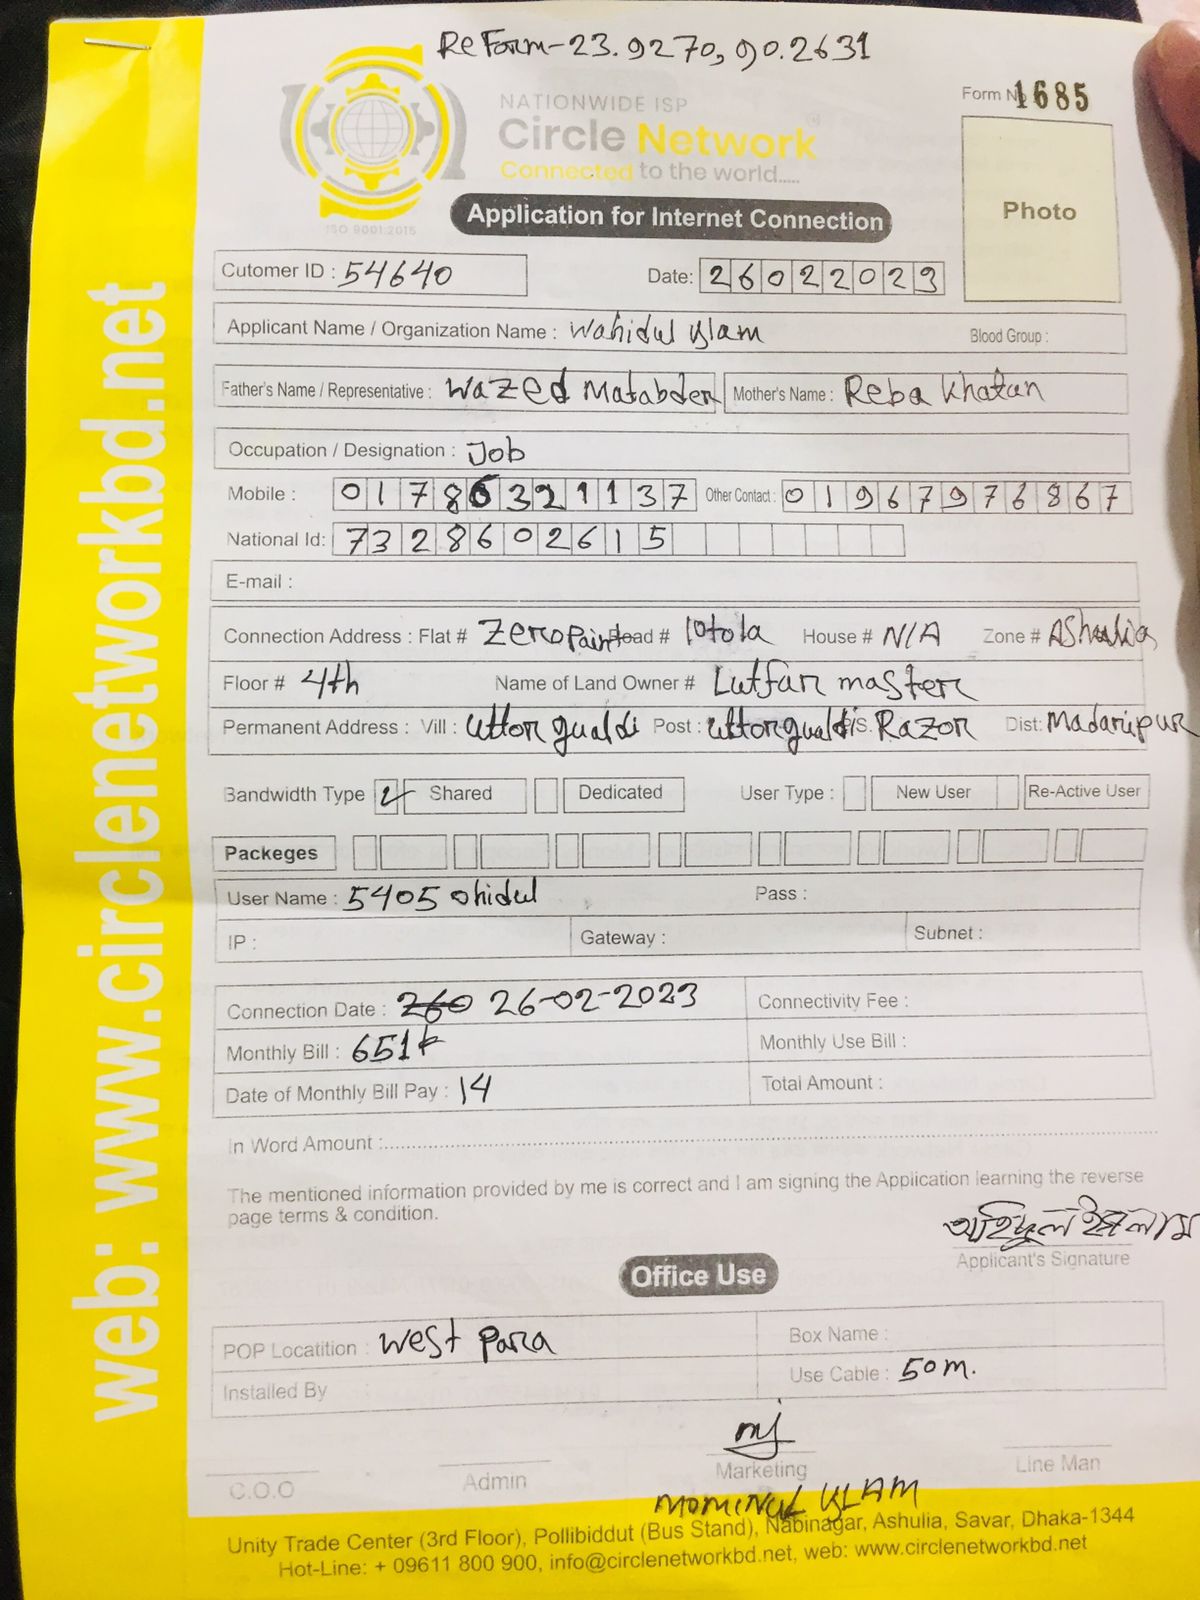 Re Form-23.9270,90.2631
Form No 1685
NATIONWIDE ISP
Circle Network
Connected to the world.....
ISO 9001:2015
Photo
Application for Internet Connection
Cutomer ID : 54640 Date: 26022023
Applicant Name / Organization Name : Wahidul Islam Blood Group :
Father's Name / Representative : Wazed Matabder Mother's Name : Reba Khatan
Occupation / Designation : Job
Mobile : 01786321137 Other Contact : 01967976867
National Id: 7328602615
E-mail :
Connection Address : Flat # Zero Point Road # 10tola House # N/A Zone # Ashulia
Floor # 4th Name of Land Owner # Lutfar master
Permanent Address : Vill : Uttor gualdi Post : Uttor gualdi P.S. Razor Dist: Madaripur
Bandwidth Type Shared Dedicated User Type : New User Re-Active User
Packeges
User Name : 5405 ohidul Pass :
IP : Gateway : Subnet :
Connection Date : 26-02-2023 Connectivity Fee :
Monthly Bill : 651 Monthly Use Bill :
Date of Monthly Bill Pay : 14 Total Amount :
In Word Amount :
The mentioned information provided by me is correct and I am signing the Application learning the reverse
page terms & condition.
অহিদুল ইসলাম
Applicant's Signature
Office Use
POP Locatition : West Para Box Name :
Installed By Use Cable : 50 m.
C.O.O Admin Marketing Line Man
MOMINUL ISLAM
Unity Trade Center (3rd Floor), Pollibiddut (Bus Stand), Nabinagar, Ashulia, Savar, Dhaka-1344
Hot-Line: + 09611 800 900, info@circlenetworkbd.net, web: www.circlenetworkbd.net
web: www.circlenetworkbd.net